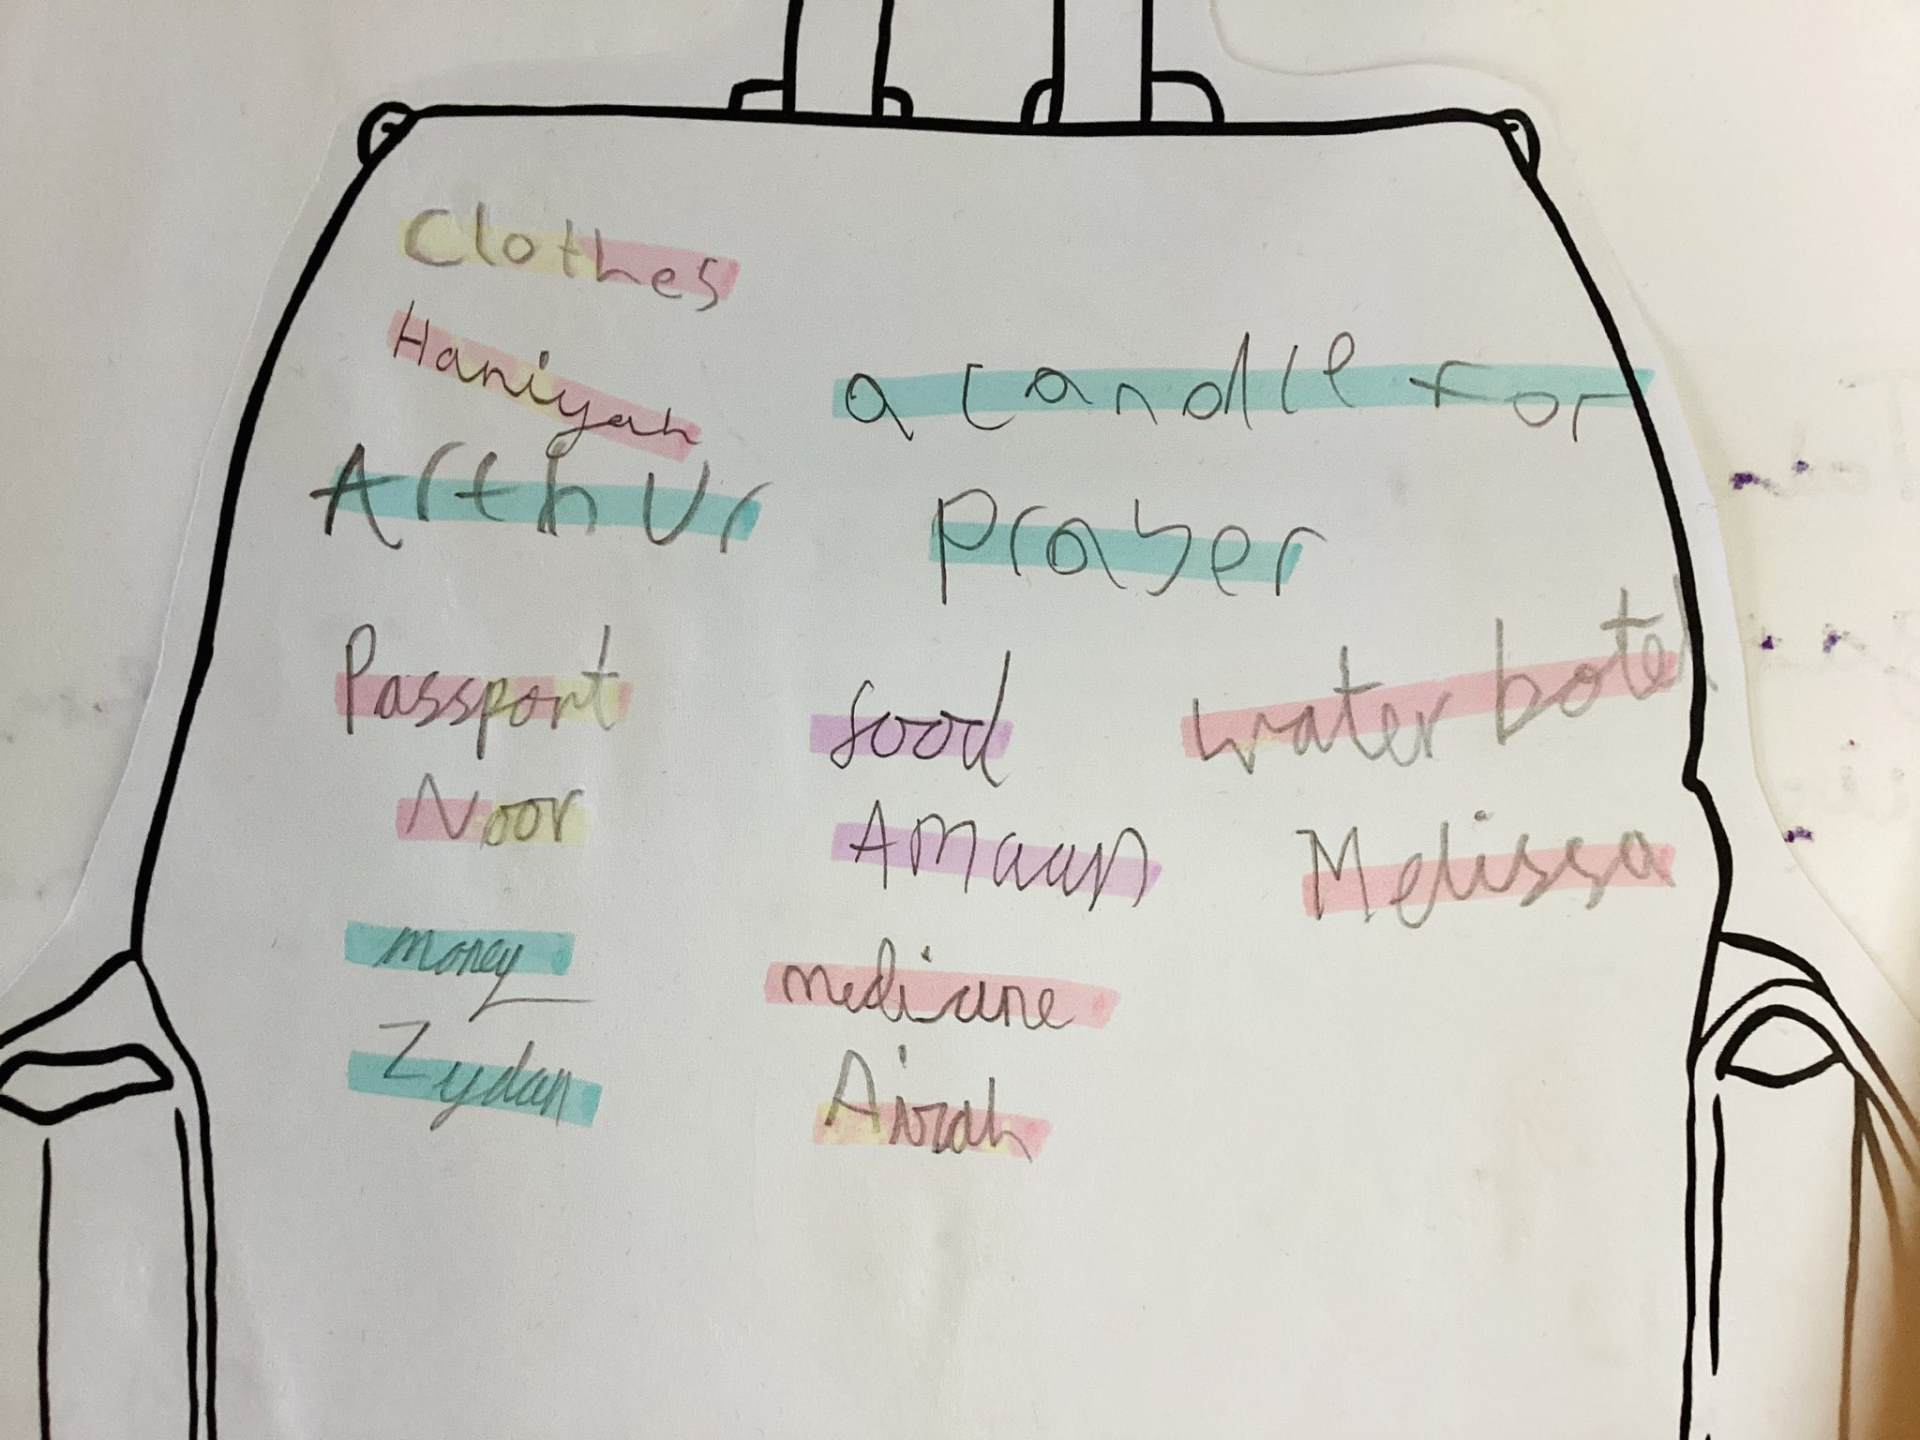 Clothes
Haniyah
Arthur
a candle for
prayer
Passport
Noor
food
Amaan
water botel
Melissa
money
Zydan
medicine
Airah